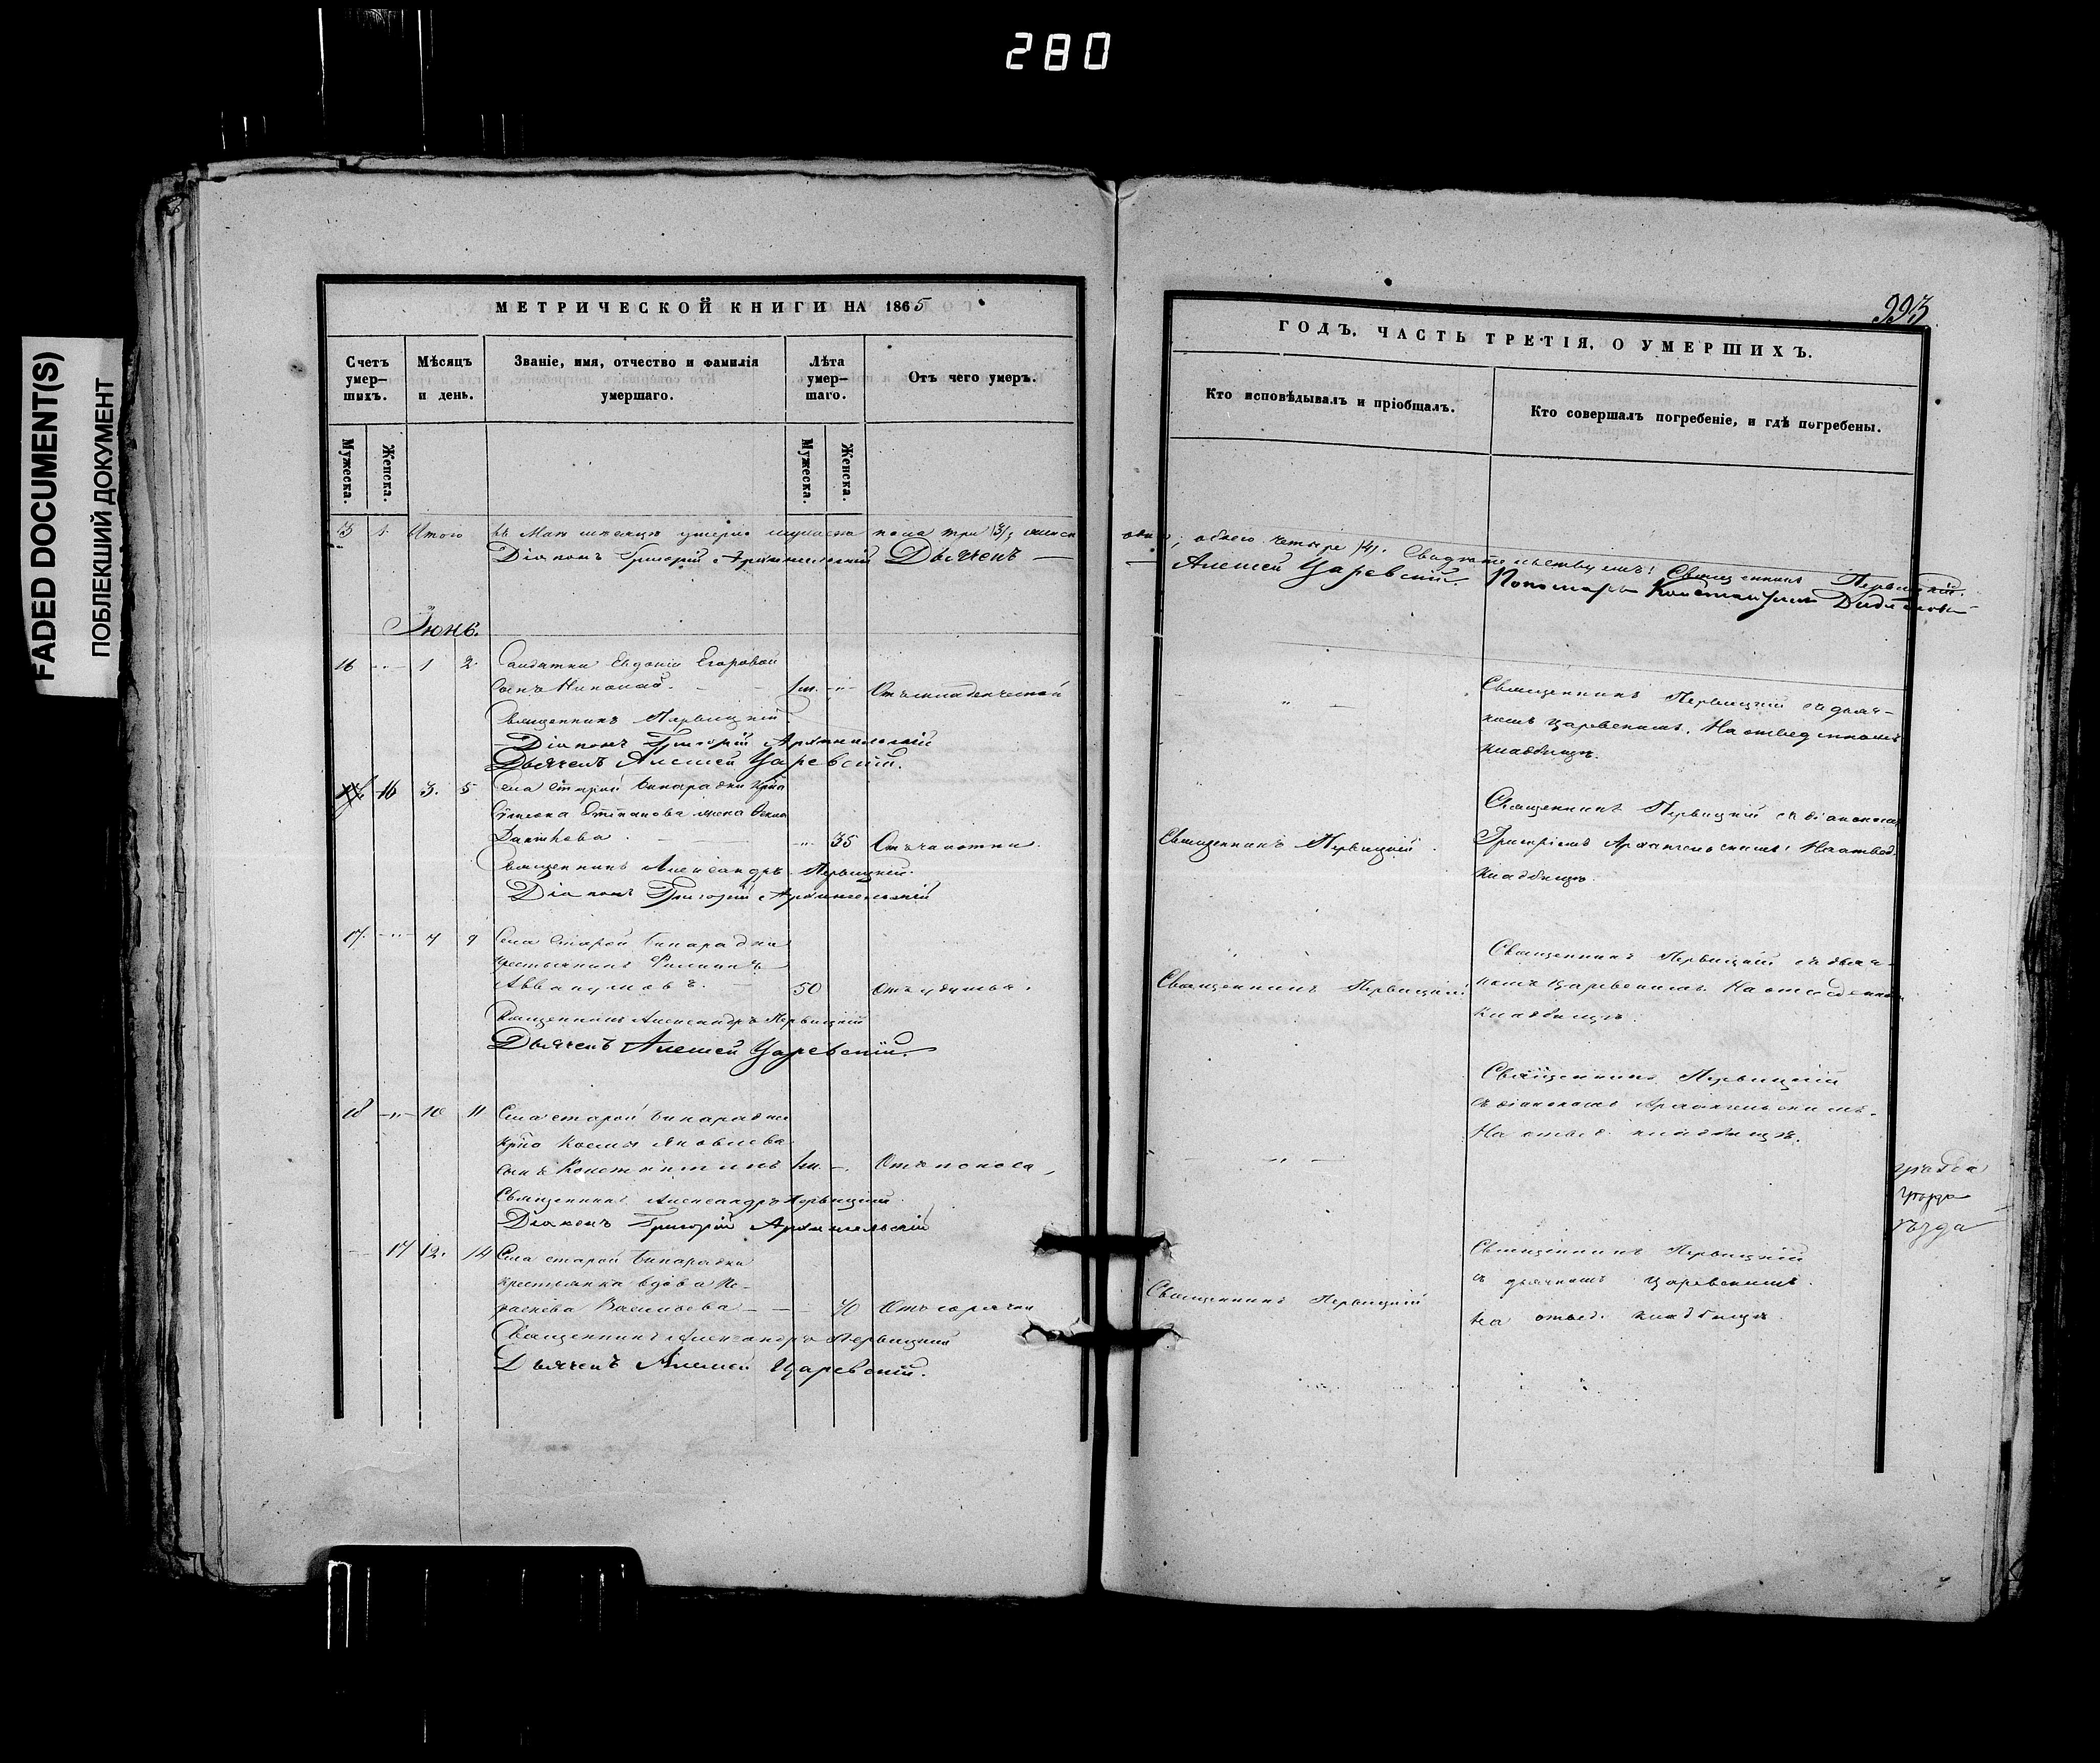 280
FADED DOCUMENT(S)
ПОБЛЕКШИЙ ДОКУМЕНТ
МЕТРИЧЕСКОЙ КНИГИ НА 1865
Счетъ умер-шихъ.
Мѣсяцъ и день.
Званіе, имя, отчество и фамилія умершаго.
Лѣта умер-шаго.
Отъ чего умеръ.
Мужеска.
Женска.
Мужеска.
Женска.
3 1 Итого въ Маѣ мѣсяцѣ умерло мужеска пола три /3/, женска
Діаконъ Григорій Архангельскій Дьячекъ
Іюнь.
16 " 1 2 Солдатки Евдокіи Егоровой
сынъ Николай. 1м. " Отъ младенческой
Священникъ Первицкій
Діаконъ Григорій Архангельскій
Дьячекъ Алексей Царевскій.
16 3. 5 Села Старой Бинарадки крна
Степанова жена
35 Отъ чахотки.
Священникъ Александръ Первицкій.
Діаконъ Григорій Архангельскій
17. " 7 9 Села Старой Бинарадки
крестьянинъ Филиппъ
Аввакумовъ. 50 Отъ удушья.
Священникъ Александръ Первицкій
Дьячекъ Алексей Царевскій.
18 " 10 11 Села старой Бинарадки
крна Космы Яковлева
сынъ Константинъ Отъ поноса
Священникъ Александръ Первицкій
Діаконъ Григорій Архангельскій
17 12. 14 Села старой Бинарадки
крестьянка вдова
Васильева 70 Отъ горячки
Священникъ Александръ Первицкій
Дьячекъ Алексей Царевскій.
993
ГОДЪ. ЧАСТЬ ТРЕТІЯ, О УМЕРШИХЪ.
Кто исповѣдывалъ и пріобщалъ.
Кто совершалъ погребеніе, и гдѣ погребены.
одна, обоего четыре /4/. Свидѣтельствуемъ: Священникъ Первицкій.
Алексей Царевскій. Пономарь Константинъ
Священникъ Первицкій съ дьяч-
комъ Царевскимъ. На отведенномъ
кладбищѣ.
Священникъ Первицкій съ діакономъ
Священникъ Первицкій.
Григоріемъ Архангельскимъ. На отвед.
кладбищѣ.
Священникъ Первицкій съ дьяч-
Священникъ Первицкій
комъ Царевскимъ. На отведенномъ
кладбищѣ.
Священникъ Первицкій
съ діакономъ Архангельскимъ.
На отвед. кладбищѣ.
Священникъ Первицкій
съ дьячкомъ Царевскимъ.
Священникъ Первицкій
на отвед. кладбищѣ.